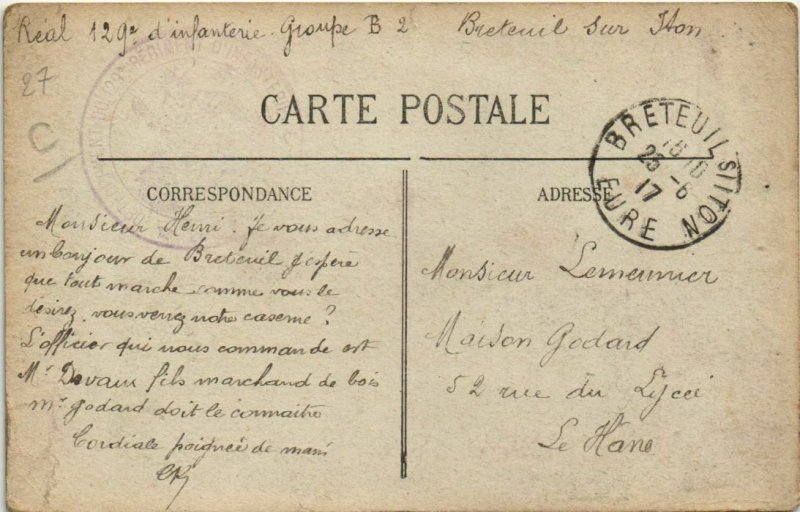 Réal 129e d'infanterie. Groupe B 2 Breteuil sur Iton
27
C/
RÉGIMENT D'INFANTERIE
CARTE POSTALE
BRETEUIL S ITON
16 10
25 -6
17
EURE
CORRESPONDANCE
Monsieur Henri. Je vous adresse
un bonjour de Breteuil j'espère
que tout marche comme vous le
désirez. vous verrez notre caserne?
L'officier qui nous commande est
Mr Devaux fils marchand de bois
mr Godard doit le connaitre
Cordiale poignée de main
ADRESSE
Monsieur Lemeunier
Maison Godard
52 rue du Lycée
Le Havre